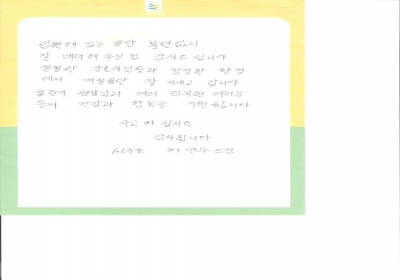 입원해 있는 동안 불편 없이
잘 배려해 주신 점 감사드립니다
친절한 간호사님들과 청결한 환경
에서 잘 지내고 갑니다
원장님과 여러 임직원 여러분
들께 건강과 행복을 기원합니다.
수고 하십시요
감사합니다
603호